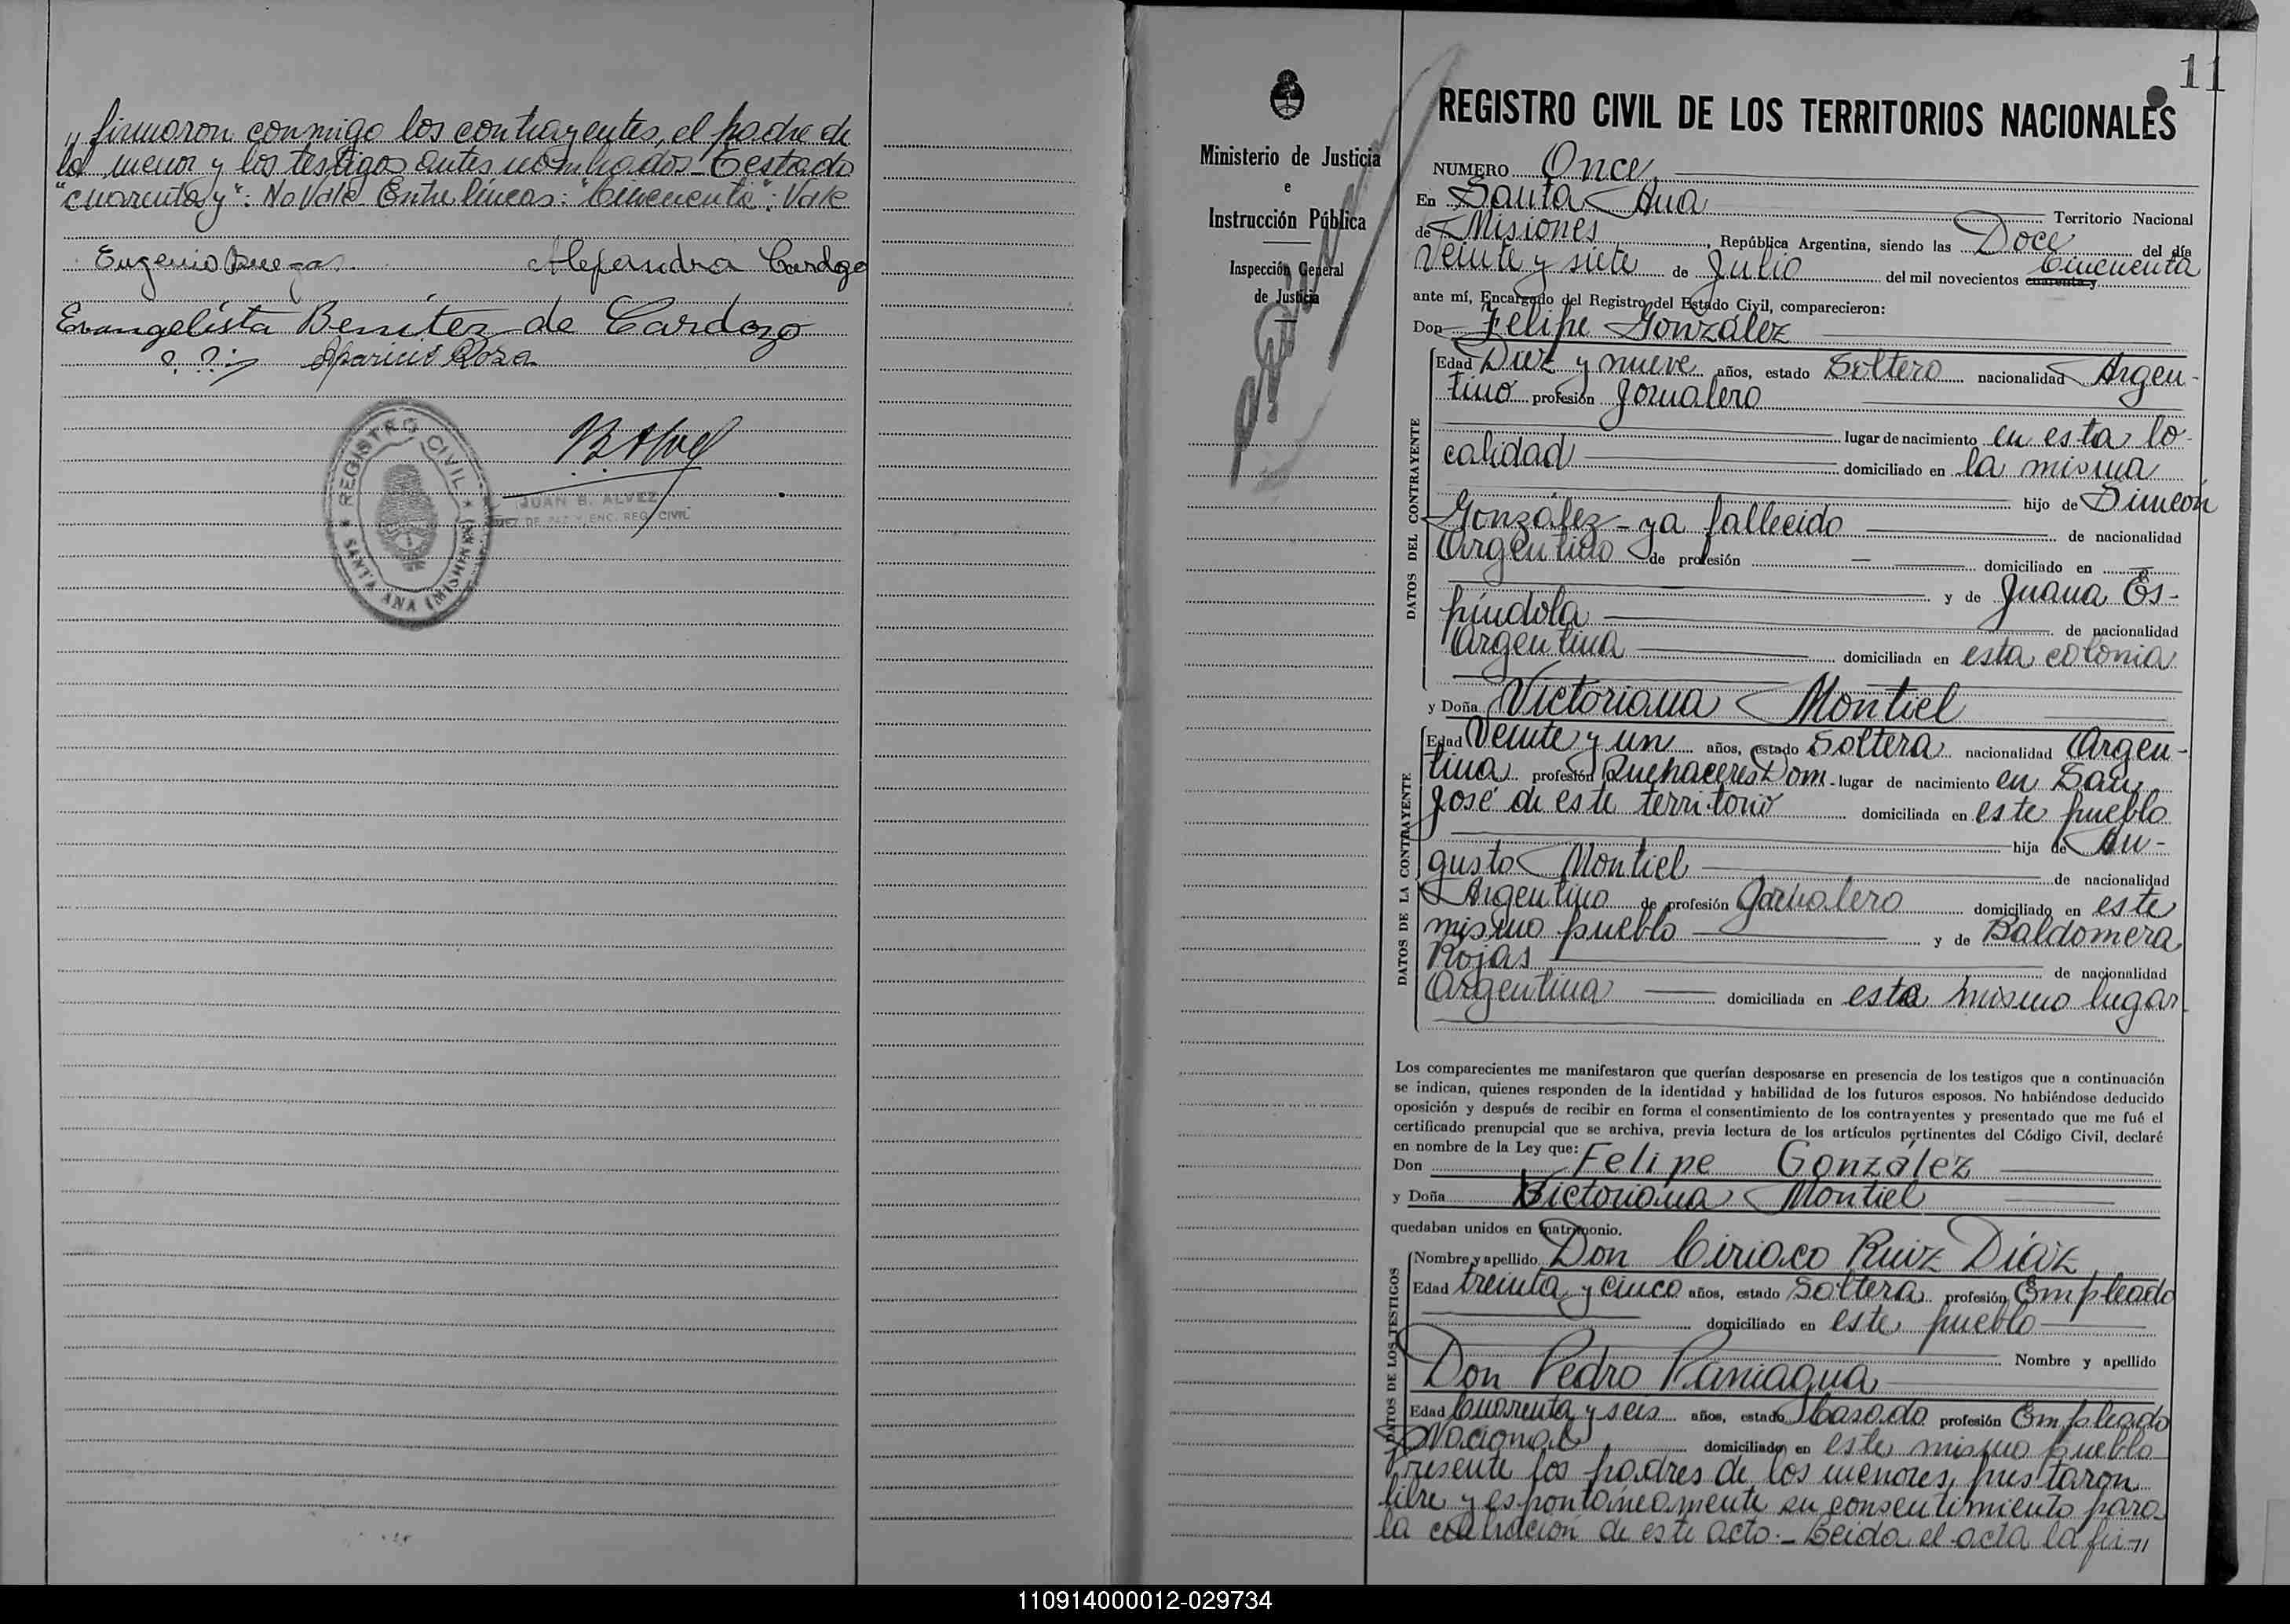 „ firmaron conmigo los contrayentes, el padre de
la menor y los testigos antes nombrados_Testado
"cuarenta y": No Vale_Entre líneas: "Cincuenta": Vale
Eugenio
Alejandra Cardozo
Evangelista Benítez de Cardozo
Aparicio Roza
REGISTRO CIVIL
SANTA ANA (MISIONES)
JUAN B. ALVEZ
JUEZ DE PAZ Y ENC. REG. CIVIL
11
Ministerio de Justicia
e
Instrucción Pública
Inspección General
de Justicia
REGISTRO CIVIL DE LOS TERRITORIOS NACIONALES
NUMERO Once
En Santa Ana Territorio Nacional
de Misiones, República Argentina, siendo las Doce del día
Veinte y siete de Julio del mil novecientos cuarenta y Cincuenta
ante mí, Encargado del Registro del Estado Civil, comparecieron:
Don Felipe González
DATOS DEL CONTRAYENTE
Edad Diez y nueve años, estado Soltero nacionalidad Argen-
tino profesión Jornalero
lugar de nacimiento en esta lo-
calidad domiciliado en la misma
hijo de Simeón
González - ya fallecido de nacionalidad
Argentino de profesión — domiciliado en —
y de Juana Es-
píndola de nacionalidad
Argentina domiciliada en esta colonia
y Doña Victoriana Montiel
DATOS DE LA CONTRAYENTE
Edad Veinte y un años, estado Soltera nacionalidad Argen-
tina profesión Quehaceres Dom. lugar de nacimiento en San
José de este territorio domiciliada en este pueblo
hija de Au-
gusto Montiel de nacionalidad
Argentino de profesión Jornalero domiciliado en este
mismo pueblo y de Baldomera
Rojas de nacionalidad
Argentina domiciliada en este mismo lugar
Los comparecientes me manifestaron que querían desposarse en presencia de los testigos que a continuación
se indican, quienes responden de la identidad y habilidad de los futuros esposos. No habiéndose deducido
oposición y después de recibir en forma el consentimiento de los contrayentes y presentado que me fué el
certificado prenupcial que se archiva, previa lectura de los artículos pertinentes del Código Civil, declaré
en nombre de la Ley que:
Don Felipe González
y Doña Victoriana Montiel
quedaban unidos en matrimonio.
DATOS DE LOS TESTIGOS
Nombre y apellido Don Ciriaco Ruiz Díaz
Edad treinta y cinco años, estado Soltera profesión Empleado
domiciliado en este pueblo
Nombre y apellido
Don Pedro Paniagua
Edad Cuarenta y seis años, estado Casado profesión Empleado
Nacional domiciliado en este mismo pueblo
Presente los padres de los menores, prestaron
libre y espontáneamente su consentimiento para
la celebración de este acto._Leida el acta la fir-"
110914000012-029734